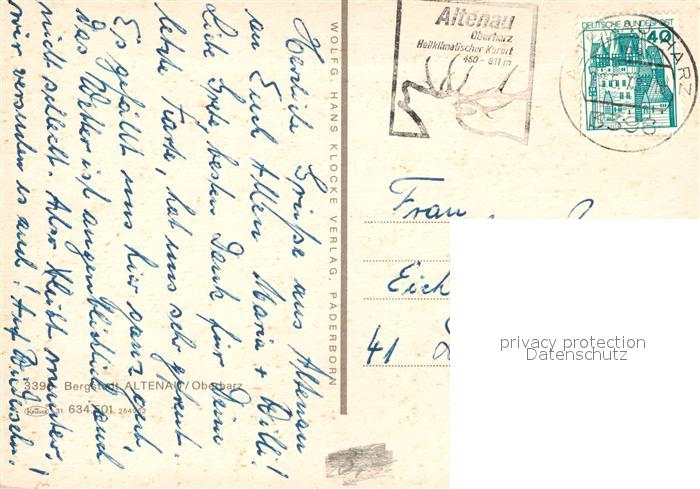 Herzliche Grüße aus Altenau
an Euch Allen Maria + Willi!
Liebe Grete, besten Dank für Deine
letzte Karte, hat uns sehr gefreut.
Es gefällt uns hier ganz gut,
das Wetter ist augenblicklich auch
nicht schlecht. Also bleibt munter,
wir versuchen es auch! Auf Wiedersehn.
3396 Bergstadt ALTENAU/Oberharz
Krüger 31. 634 501 254982
WOLFG. HANS KLOCKE VERLAG, PADERBORN
Altenau
Oberharz
Heilklimatischer Kurort
450 - 811 m
DEUTSCHE BUNDESPOST
40
HARZ
3396
Frau
Eich
41
privacy protection
Datenschutz